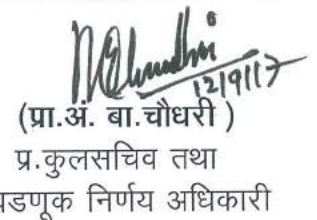 12/9/17
(प्रा.अं. बा.चौधरी )
प्र.कुलसचिव तथा
वडणूक निर्णय अधिकारी